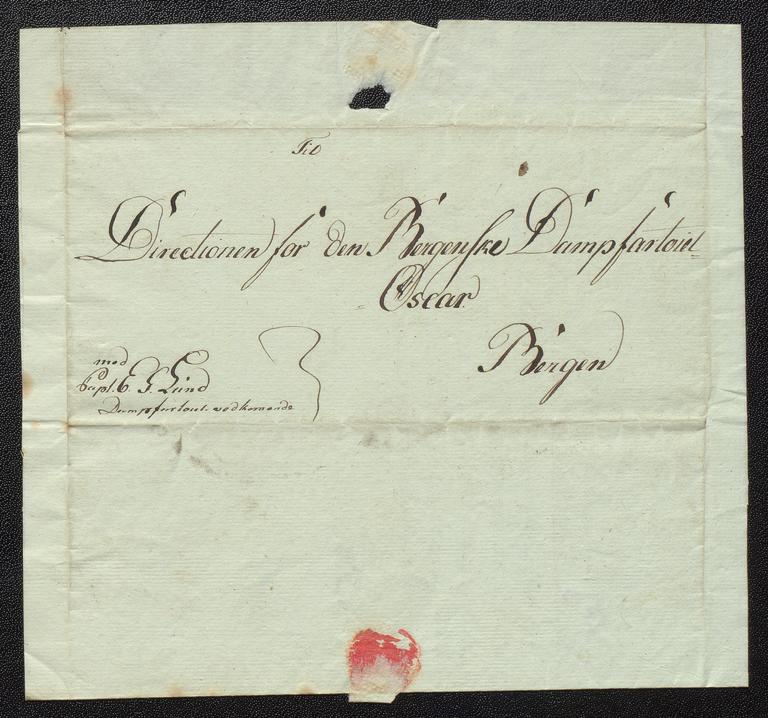 Til
Directionen for den Bergenske Dampfartøiet
Oscar
Bergen
med
Capt. C. S. Lund
Dampfartøiet vedkomende